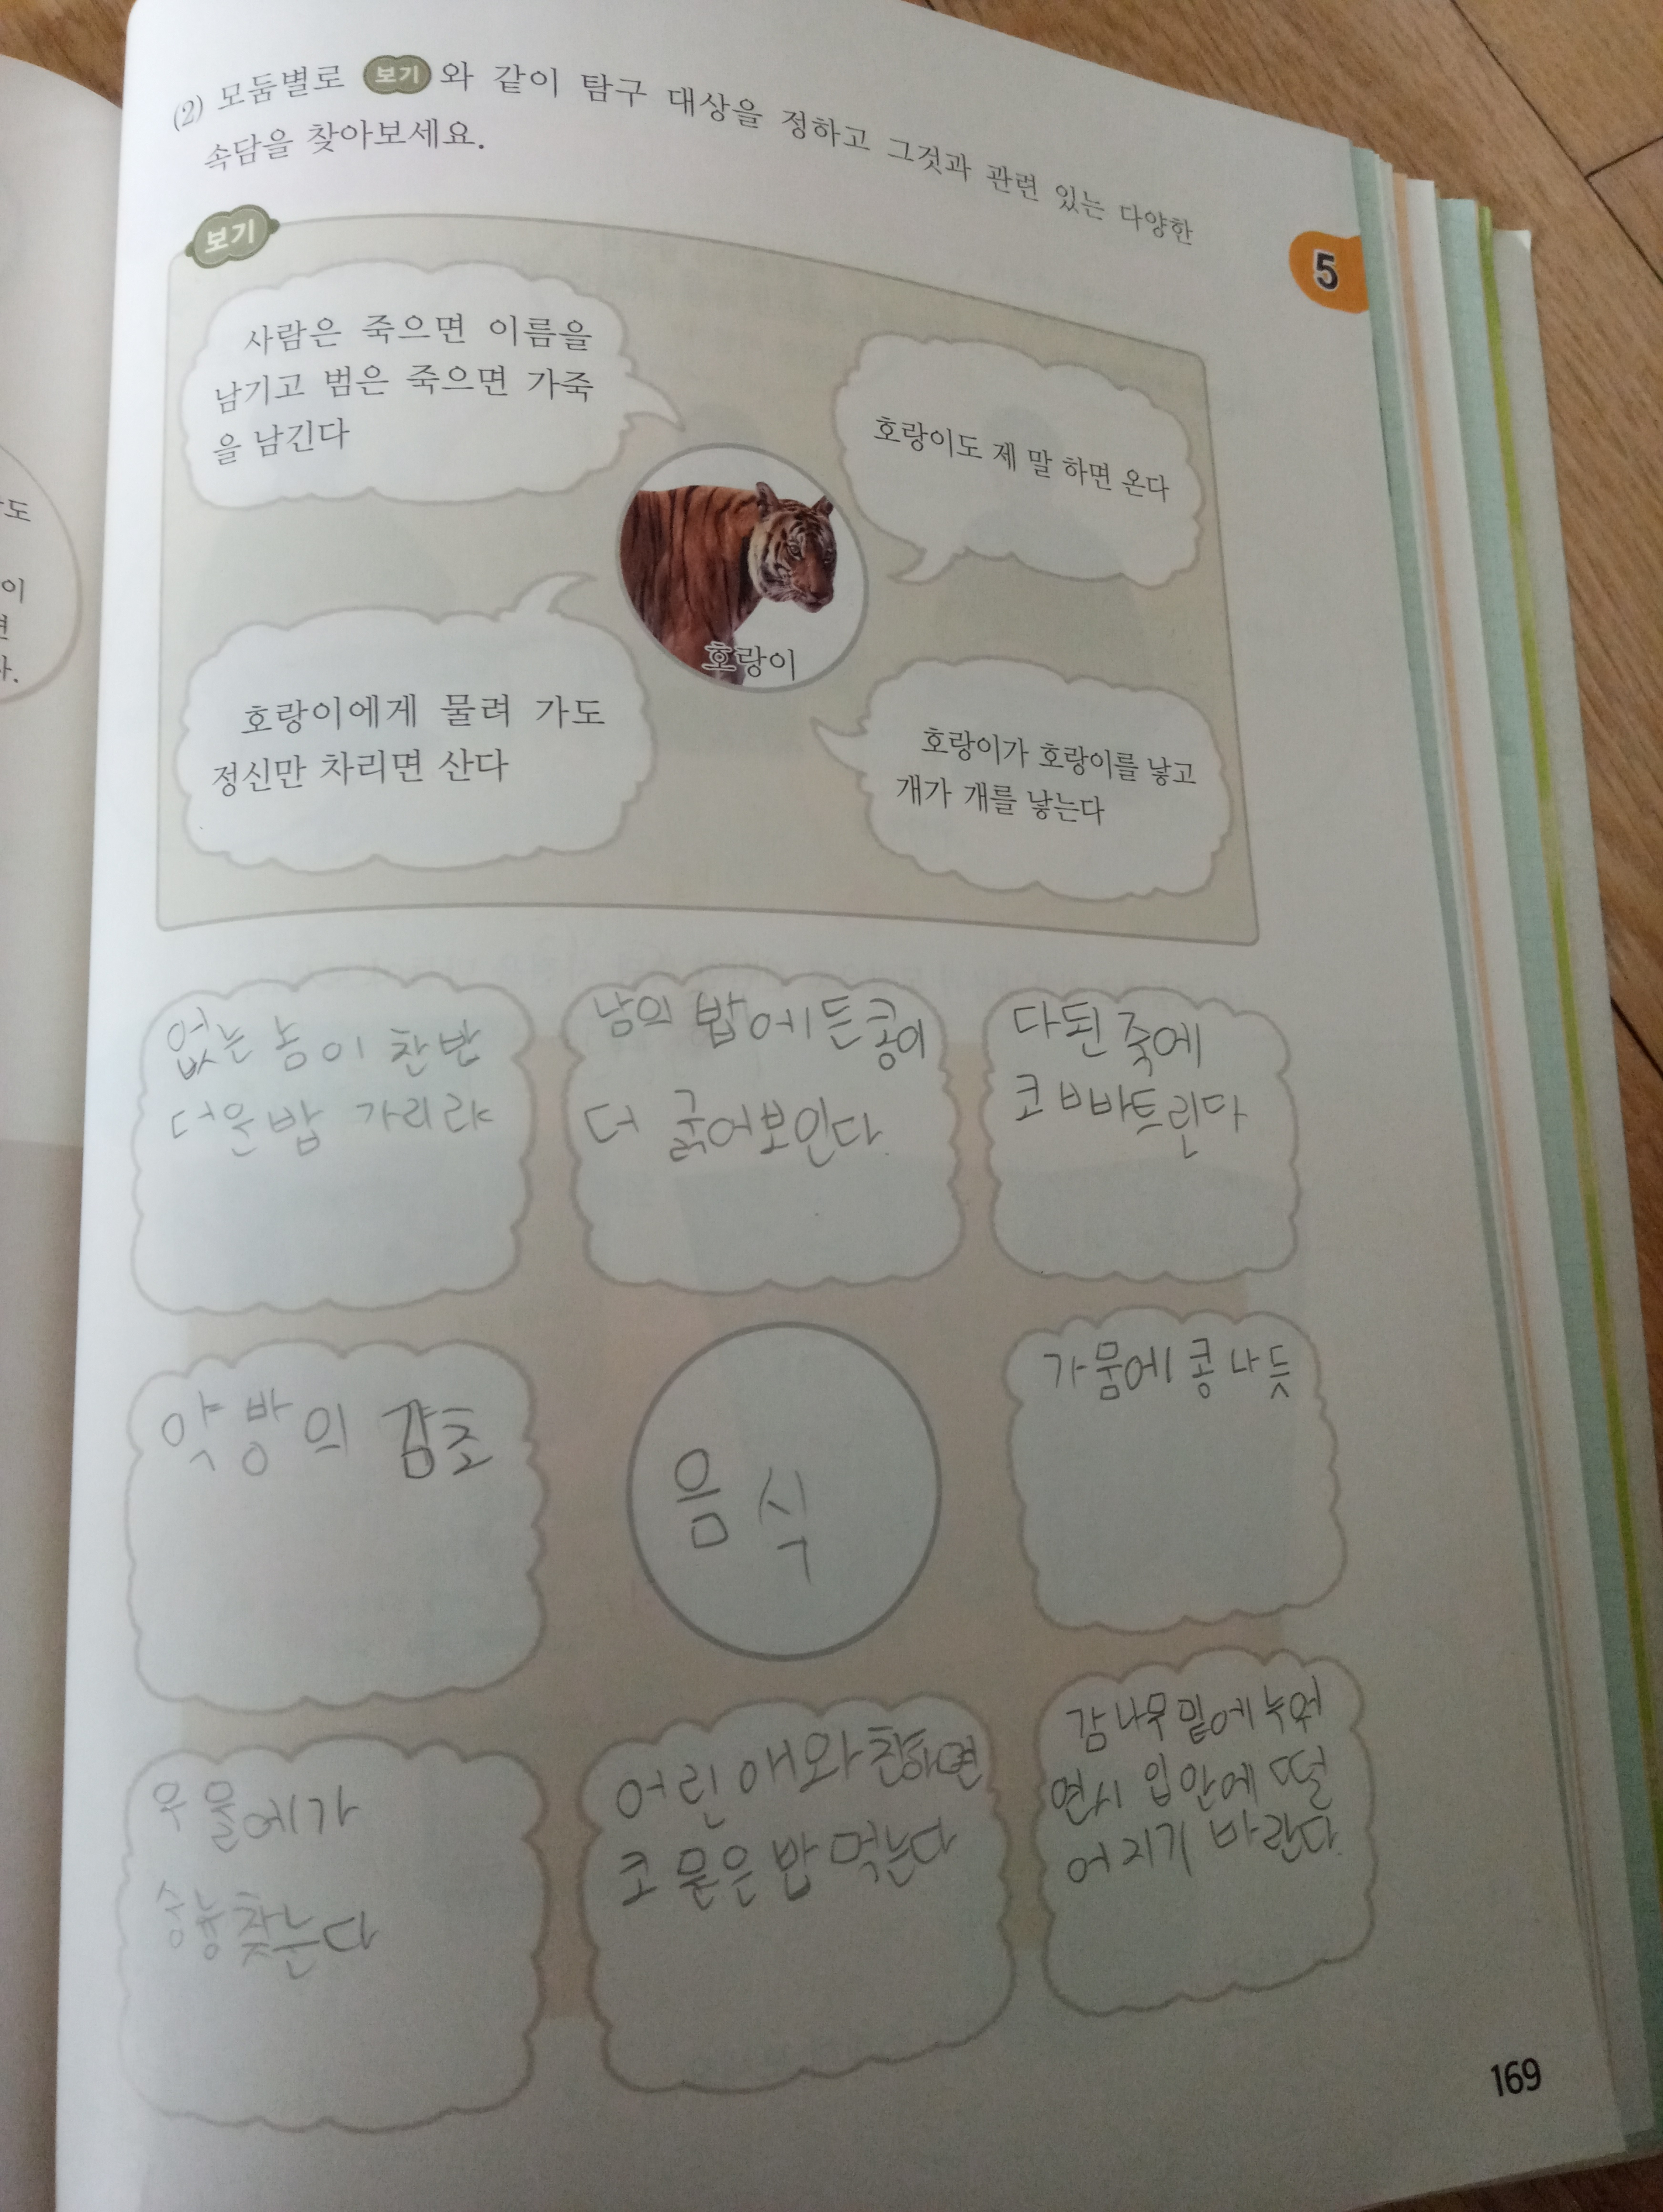 (2) 모둠별로 보기 와 같이 탐구 대상을 정하고 그것과 관련 있는 다양한
속담을 찾아보세요.
5
보기
사람은 죽으면 이름을
남기고 범은 죽으면 가죽
을 남긴다
호랑이도 제 말 하면 온다
호랑이
호랑이에게 물려 가도
정신만 차리면 산다
호랑이가 호랑이를 낳고
개가 개를 낳는다
없는 놈이 찬밥
더운밥 가리랴
남의 밥에 든 콩이
더 굵어보인다.
다된 죽에
코 빠트린다
약방의 감초
음식
가뭄에 콩 나듯
우물에가
숭늉찾는다
어린애와 친하면
코 묻은 밥 먹는다
감나무 밑에 누워
연시 입안에 떨
어지기 바란다.
169
도
이
면
다.